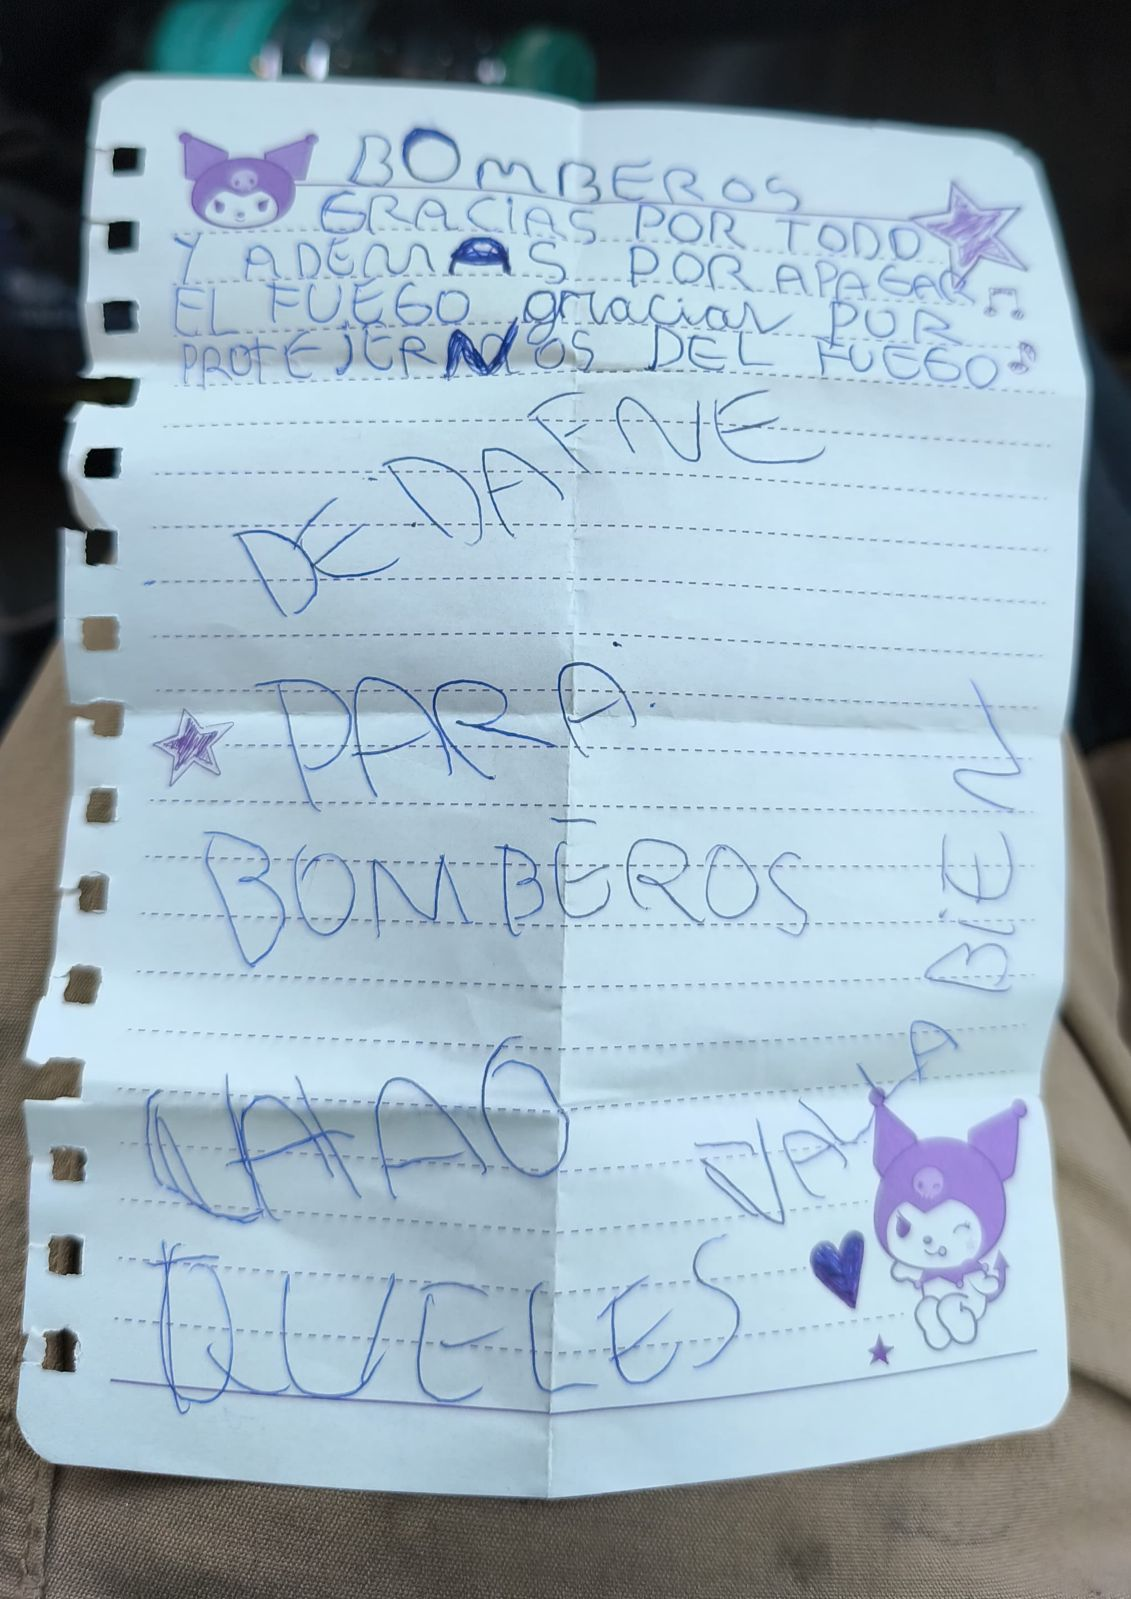 BOMBEROS
GRACIAS POR TODO
Y ADEMAS POR APAGAR
EL FUEGO gracias POR
PROTEJERNOS DEL FUEGO
DE DAFNE
PARA
BOMBEROS
OJALA
QUELES
VALLA BIEN